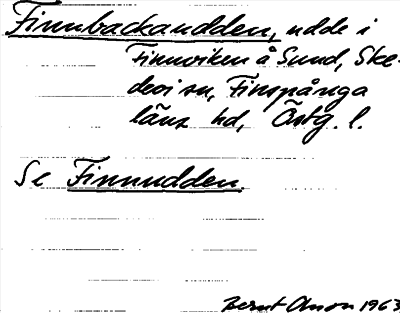 Finnbackaudden, udde i
Finnviken å Sund, Ske-
devi sn, Finspånga
läns hd, Östg. l.
Se Finnudden.
Bernt Olsson 1963